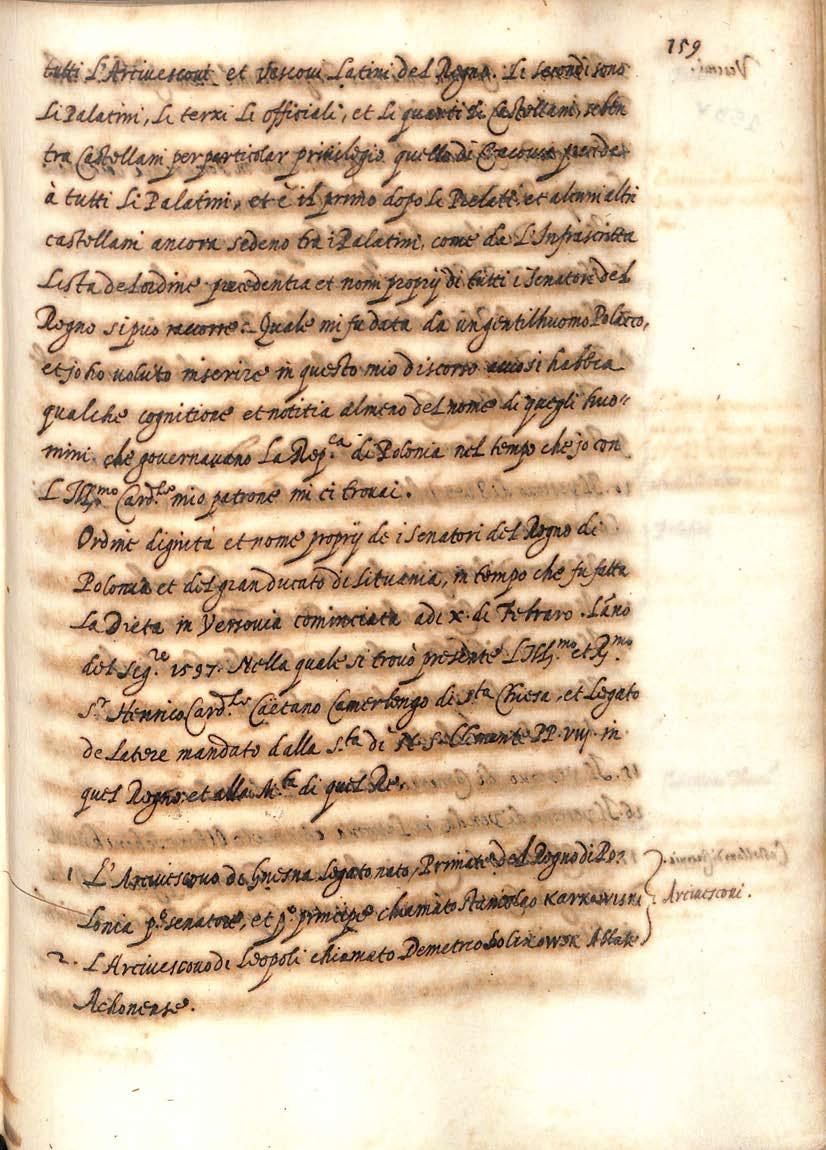 159
tutti L'Arciuescoui et Vescoui Latini del Regno. Li secondi sono
Li Palatini, Li terzi Li officiali, et Li quarti Li Castellani, se ben
tra Castellani per particolar priuilegio quello di Cracouia precede
à tutti Li Palatini, et è il primo dopo Li Prelati, et alcuni altri
castellani ancora sedeno tra i Palatini, come da L'Infrascritta
Lista del ordine precedentia et nomi proprij di tutti i Senatori del
Regno si puo raccorre. Quale mi fu data da un gentilhuomo Polacco,
et jo ho uoluto inserire in questo mio discorso accio si habbia
qualche cognitione et notitia almeno del nome di quegli huo=
mini che gouernauano La Rep.ca di Polonia nel tempo che jo con
L'Ill.mo Card.le mio patrone mi ci trouai.
Ordine dignità et nome proprij de i Senatori del Regno di
Polonia et del gran ducato di Lituania, in tempo che fu fatta
La Dieta in Versouia cominciata adi x. di Febraro. L'año
del Sig.re 1597. Nella quale si trouò presente L'Ill.mo et R.mo
S.r Henrico Card.le Caëtano Camerlengo di S.ta Chiesa, et Legato
de Latere mandato dalla S.tà di N. S. Clemente PP. viij. in
quel Regno et alla M.tà di quel Re.
1 L'Arciuescouo di Gnesna Legato nato, Primate del Regno di Po=
lonia p.o senatore, et p.o principe chiamato Stanislao Karkowiski
Arciuescoui.
2. L'Arciuescouo di Leopoli chiamato Demetrio Solikowsk Abbate
Achonense.